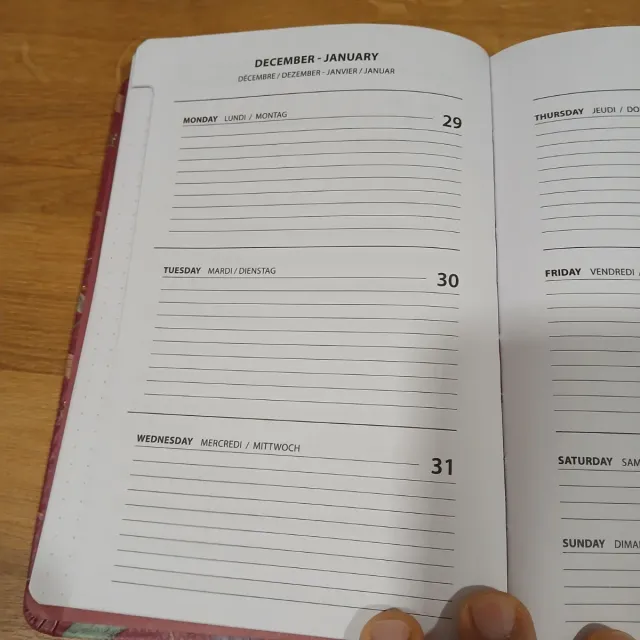 DECEMBER - JANUARY
DÉCEMBRE / DEZEMBER - JANVIER / JANUAR
MONDAY LUNDI / MONTAG 29
TUESDAY MARDI / DIENSTAG 30
WEDNESDAY MERCREDI / MITTWOCH 31
THURSDAY JEUDI / DO
FRIDAY VENDREDI /
SATURDAY SAM
SUNDAY DIMA